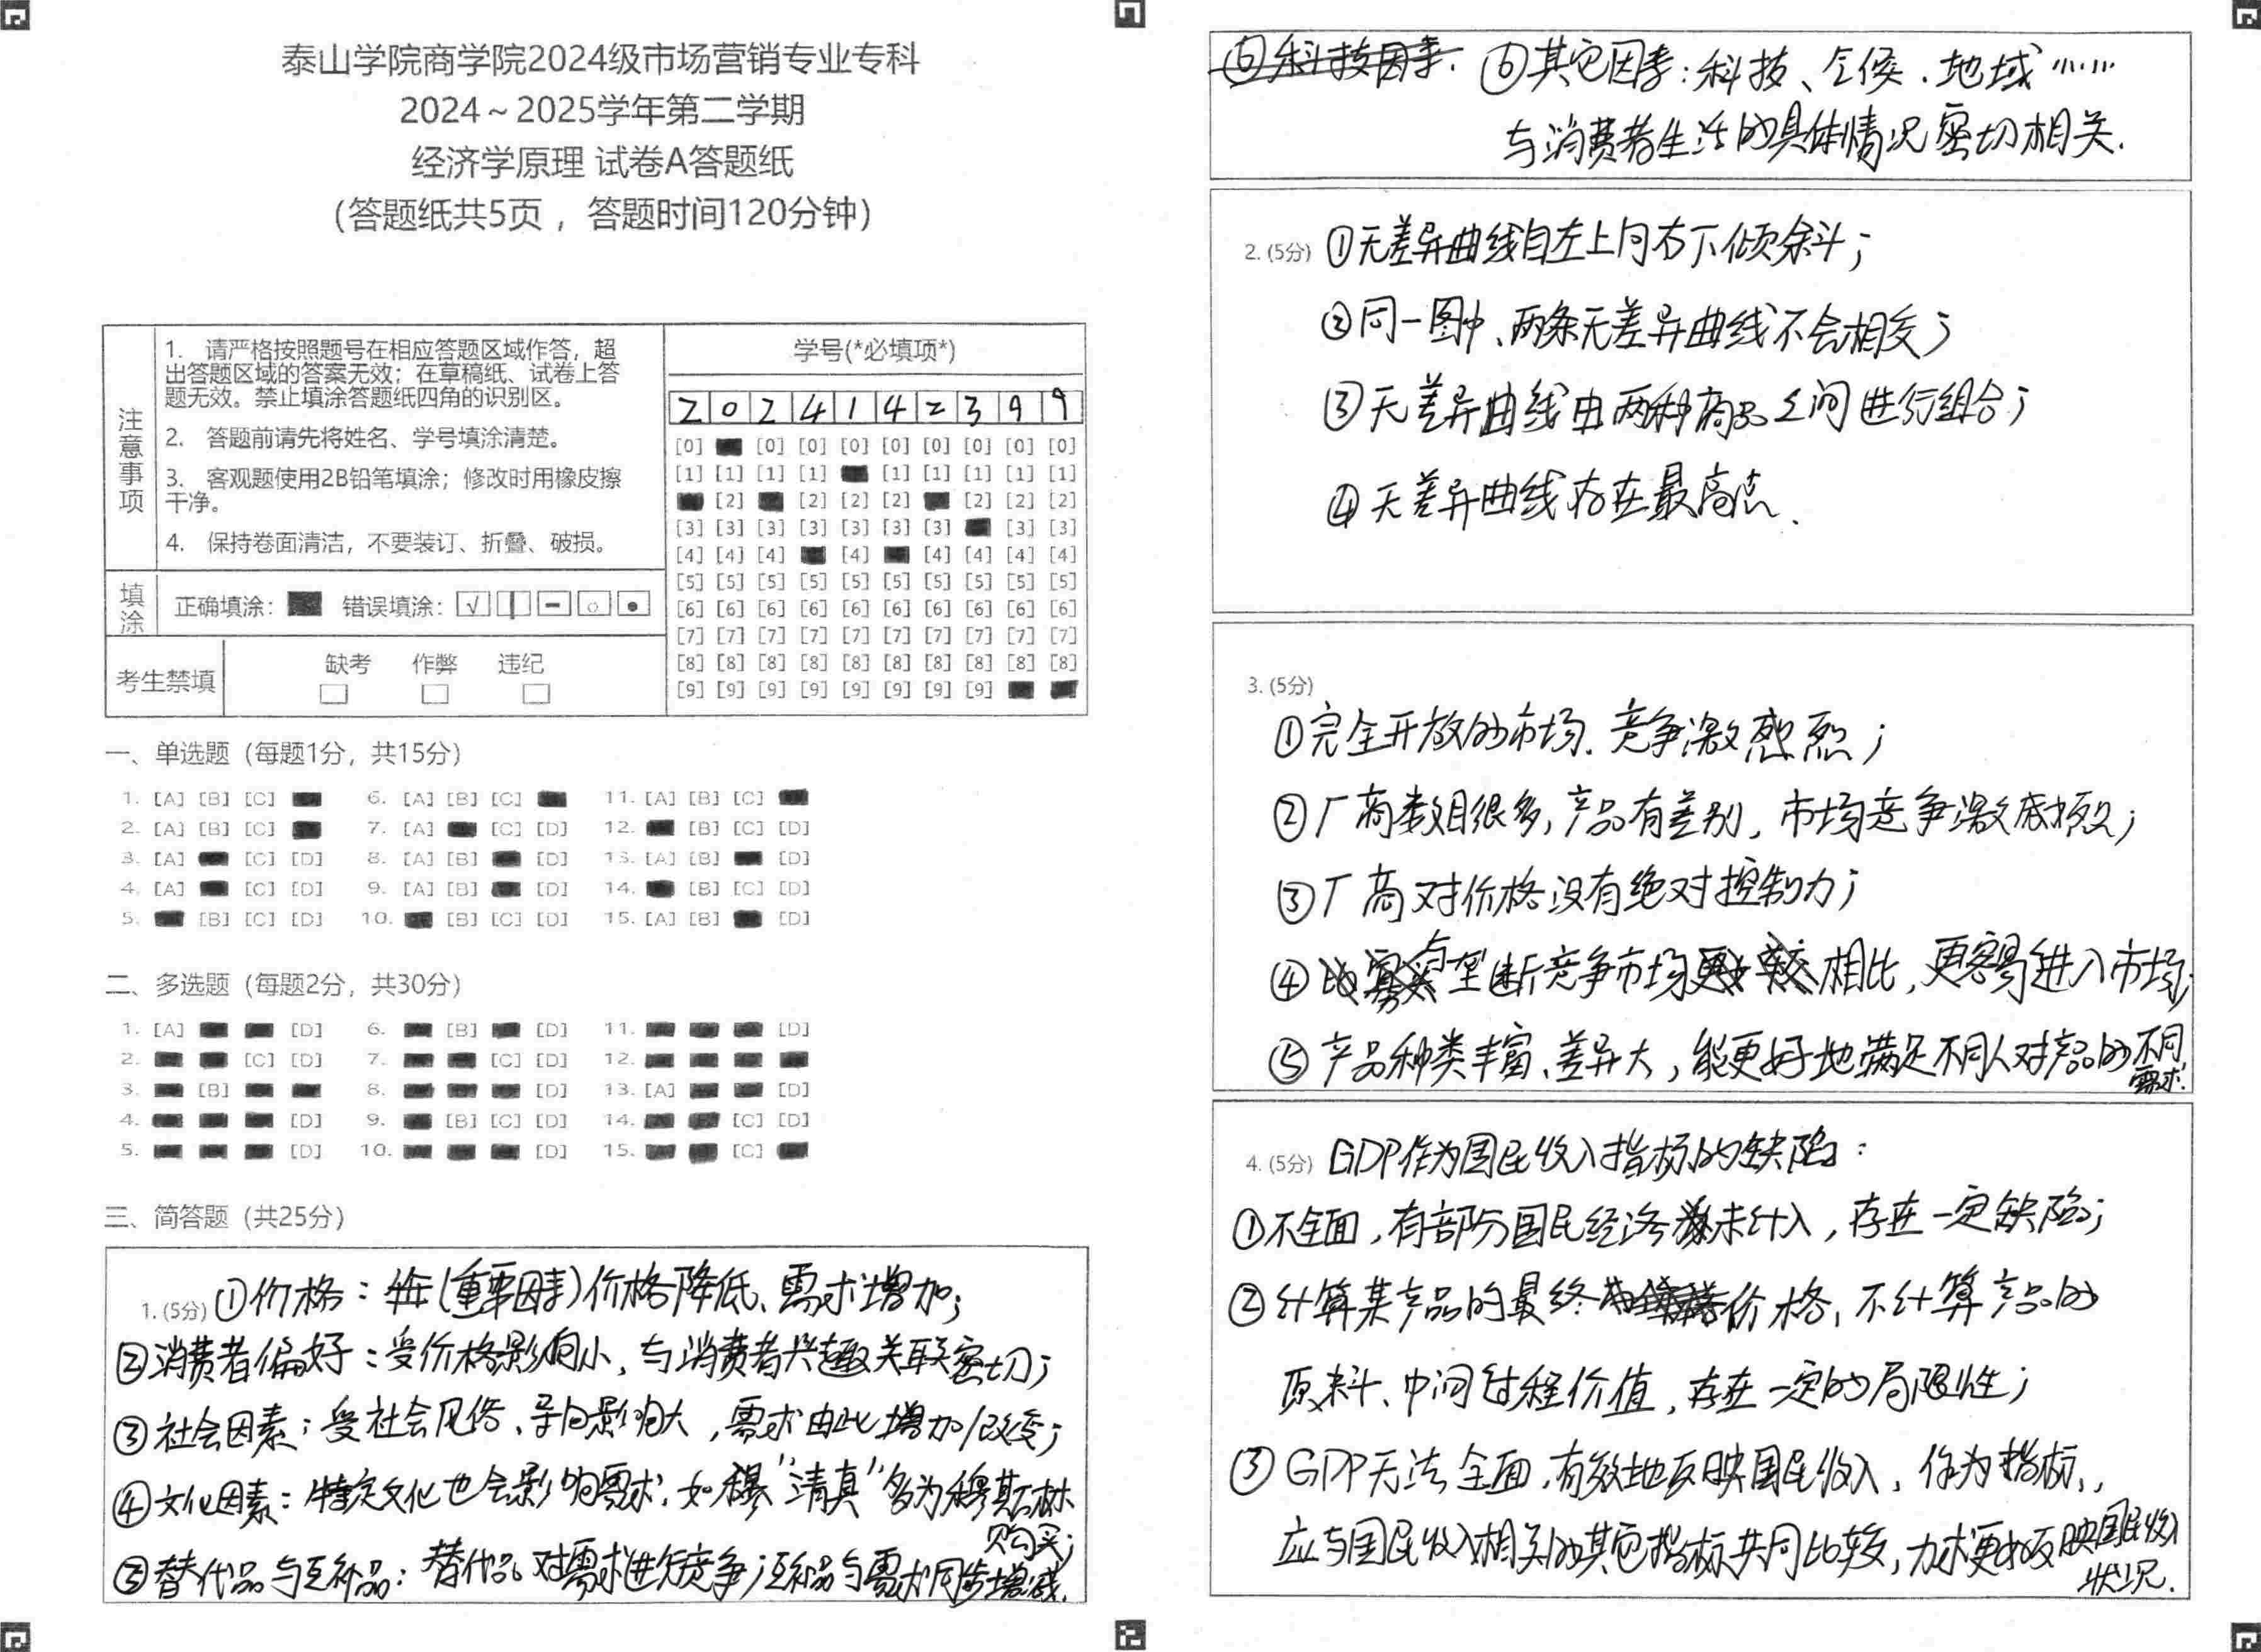 泰山学院商学院2024级市场营销专业专科
2024～2025学年第二学期
经济学原理 试卷A答题纸
（答题纸共5页，答题时间120分钟）
注意事项
1. 请严格按照题号在相应答题区域作答，超
出答题区域的答案无效；在草稿纸、试卷上答
题无效。禁止填涂答题纸四角的识别区。
2. 答题前请先将姓名、学号填涂清楚。
3. 客观题使用2B铅笔填涂；修改时用橡皮擦
干净。
4. 保持卷面清洁，不要装订、折叠、破损。
填涂 正确填涂： 错误填涂：
考生禁填 缺考 作弊 违纪
学号(*必填项*)
2 0 2 4 1 4 2 3 9 9
[0] [0] [0] [0] [0] [0] [0] [0] [0]
[1] [1] [1] [1] [1] [1] [1] [1] [1]
[2] [2] [2] [2] [2] [2] [2]
[3] [3] [3] [3] [3] [3] [3] [3] [3]
[4] [4] [4] [4] [4] [4] [4] [4]
[5] [5] [5] [5] [5] [5] [5] [5] [5] [5]
[6] [6] [6] [6] [6] [6] [6] [6] [6] [6]
[7] [7] [7] [7] [7] [7] [7] [7] [7] [7]
[8] [8] [8] [8] [8] [8] [8] [8] [8] [8]
[9] [9] [9] [9] [9] [9] [9] [9]
一、单选题（每题1分，共15分）
1. [A] [B] [C] 6. [A] [B] [C] 11. [A] [B] [C]
2. [A] [B] [C] 7. [A] [C] [D] 12. [B] [C] [D]
3. [A] [C] [D] 8. [A] [B] [D] 13. [A] [B] [D]
4. [A] [C] [D] 9. [A] [B] [D] 14. [B] [C] [D]
5. [B] [C] [D] 10. [B] [C] [D] 15. [A] [B] [D]
二、多选题（每题2分，共30分）
1. [A] [D] 6. [B] [D] 11. [D]
2. [C] [D] 7. [C] [D] 12.
3. [B] 8. [D] 13. [A] [D]
4. [D] 9. [B] [C] [D] 14. [C] [D]
5. [D] 10. [D] 15. [C]
三、简答题（共25分）
1. (5分) ①价格：(重要因素)价格降低、需求增加；
②消费者偏好：受价格影响小，与消费者兴趣关联密切；
③社会因素：受社会风俗、导向影响大，需求由此增加/改变；
④文化因素：特定文化也会影响需求，如"清真"多为穆斯林
购买；
⑤替代品与互补品：替代品对需求进行竞争；互补品与需求同步增减.
⑥科技因素. ⑥其它因素：科技、气候、地域……
与消费者生活的具体情况密切相关.
2. (5分) ①无差异曲线自左上向右下倾斜；
②同一图中、两条无差异曲线不会相交；
③无差异曲线由两种商品之间进行组合；
④无差异曲线存在最高点.
3. (5分)
①完全开放的市场. 竞争激烈；
②厂商数目很多，产品有差别，市场竞争激烈；
③厂商对价格没有绝对控制力；
④与垄断竞争市场相比，更容易进入市场；
⑤产品种类丰富、差异大，能更好地满足不同人对产品的不同
需求.
4. (5分) GDP作为国民收入指标的缺陷：
①不全面，有部分国民经济未计入，存在一定缺陷；
②计算某产品的最终价格，不计算产品的
原料、中间过程价值，存在一定的局限性；
③GDP无法全面、有效地反映国民收入，作为指标，
应与国民收入相关的其它指标共同比较，力求更好反映国民收入
状况.